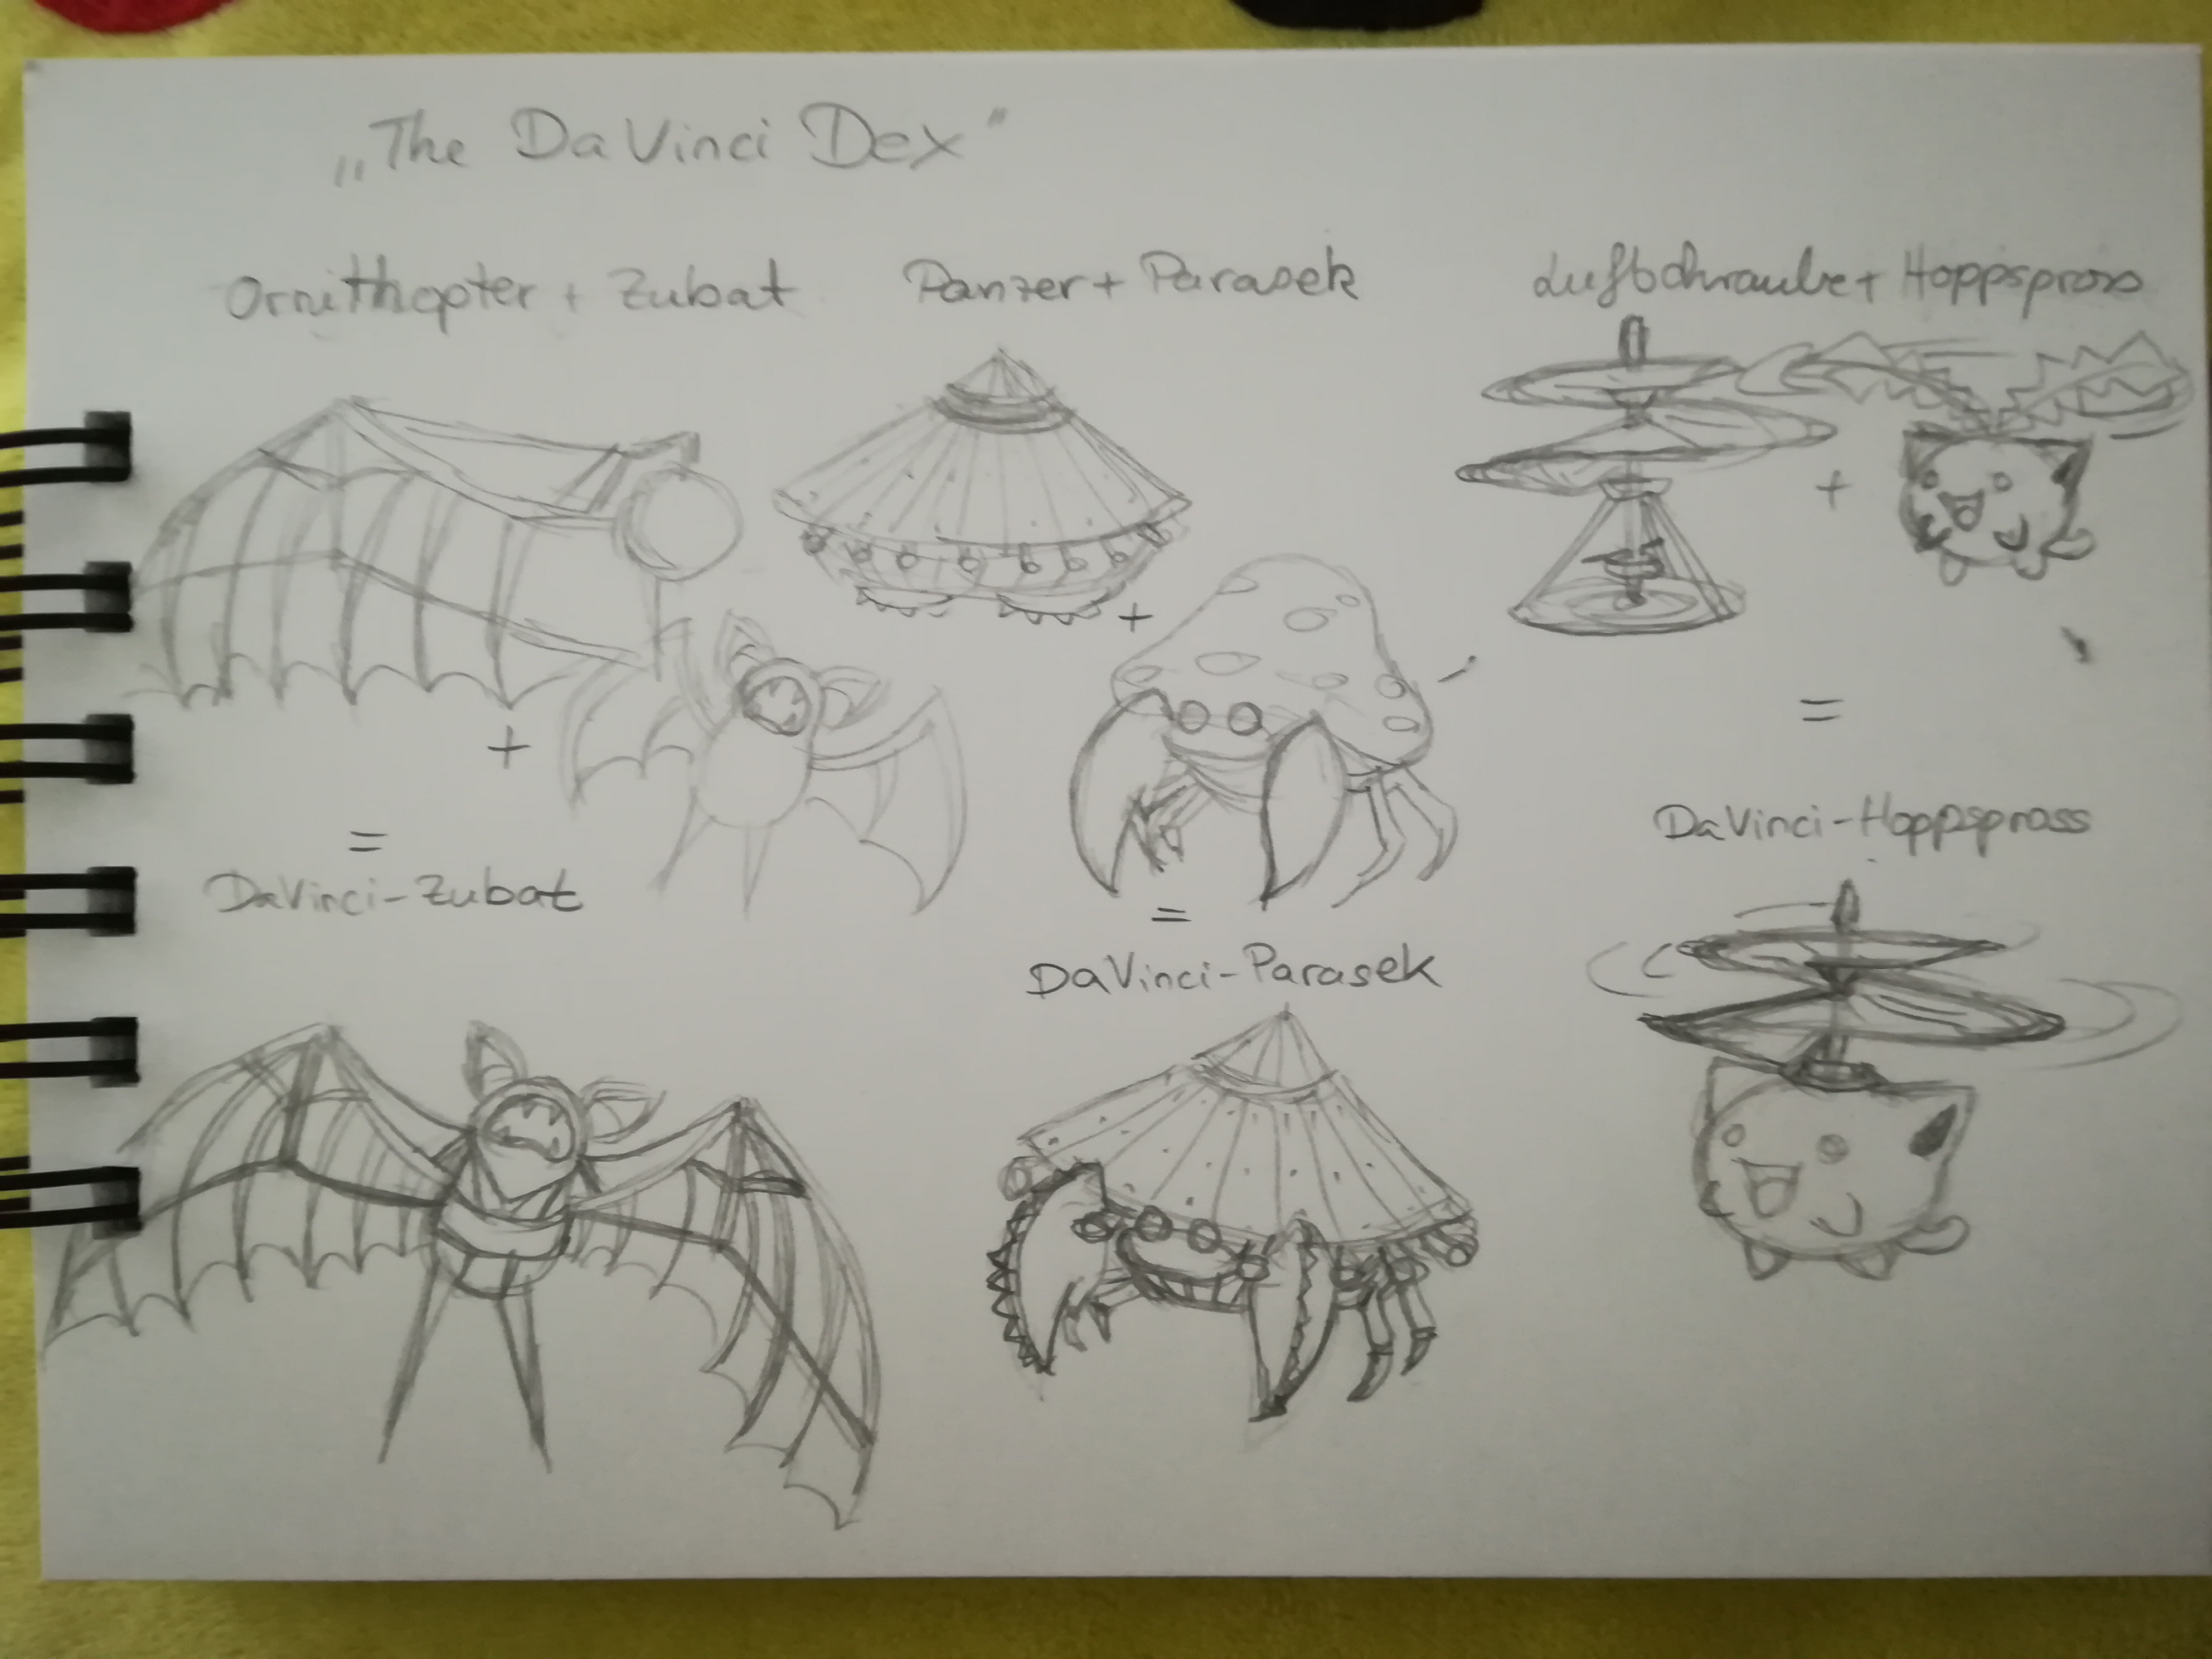 „The DaVinci Dex"
Ornithopter + Zubat
Panzer + Parasek
Luftschraube + Hoppspross
+
+
+
=
=
=
DaVinci-Hoppspross
DaVinci-Zubat
DaVinci-Parasek